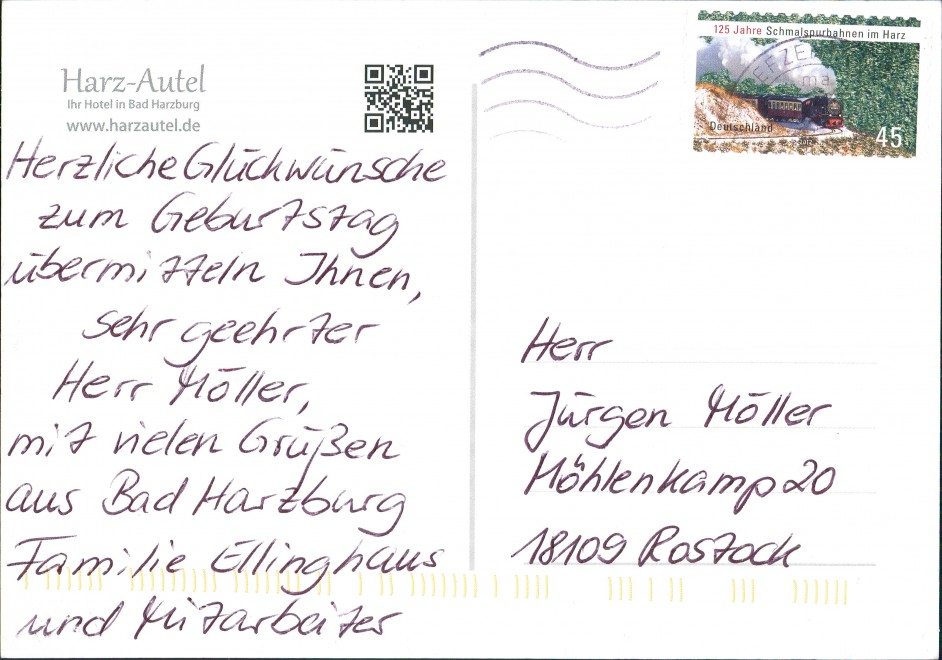 Harz-Autel
Ihr Hotel in Bad Harzburg
www.harzautel.de
Herzliche Glückwünsche
zum Geburtstag
übermitteln Ihnen,
sehr geehrter
Herr Möller,
mit vielen Grüßen
aus Bad Harzburg
Familie Ellinghaus
und Mitarbeiter
125 Jahre Schmalspurbahnen im Harz
Deutschland
45
Herr
Jürgen Möller
Möhlenkamp 20
18109 Rostock